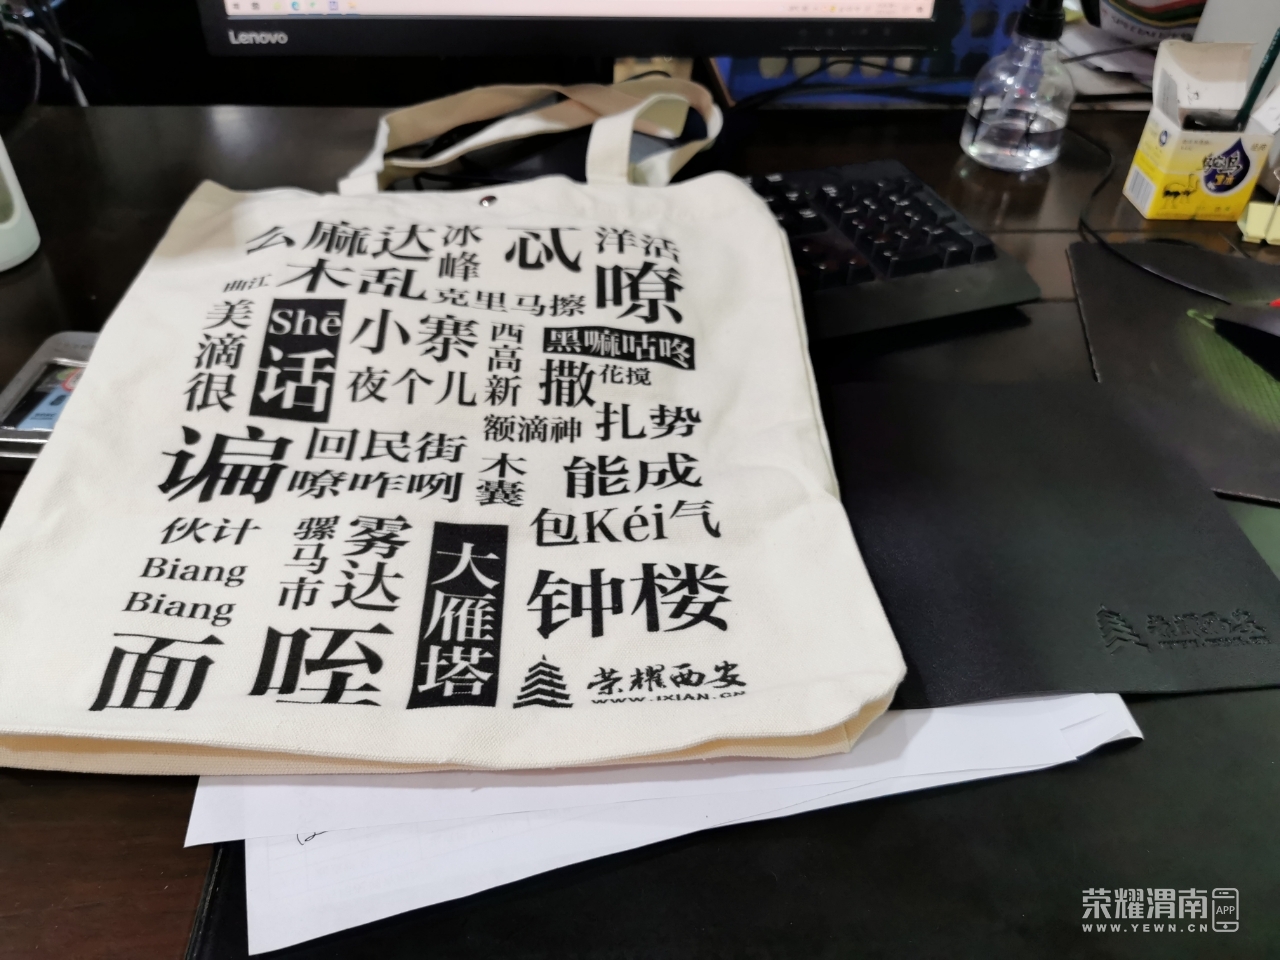 Lenovo
么麻达
冰峰
忒
洋活
曲江
木乱
克里马擦
嘹
美滴很
Shē
话
小寨
西高新
黑嘛咕咚
夜个儿
撒
花搅
额滴神
扎势
谝
回民街
木囊
能成
嘹咋咧
包Kéi气
伙计
骡马市
雾达
大雁塔
钟楼
Biang
Biang
面
咥
荣耀西安
WWW.IXIAN.CN
荣耀渭南
APP
WWW.YEWN.CN